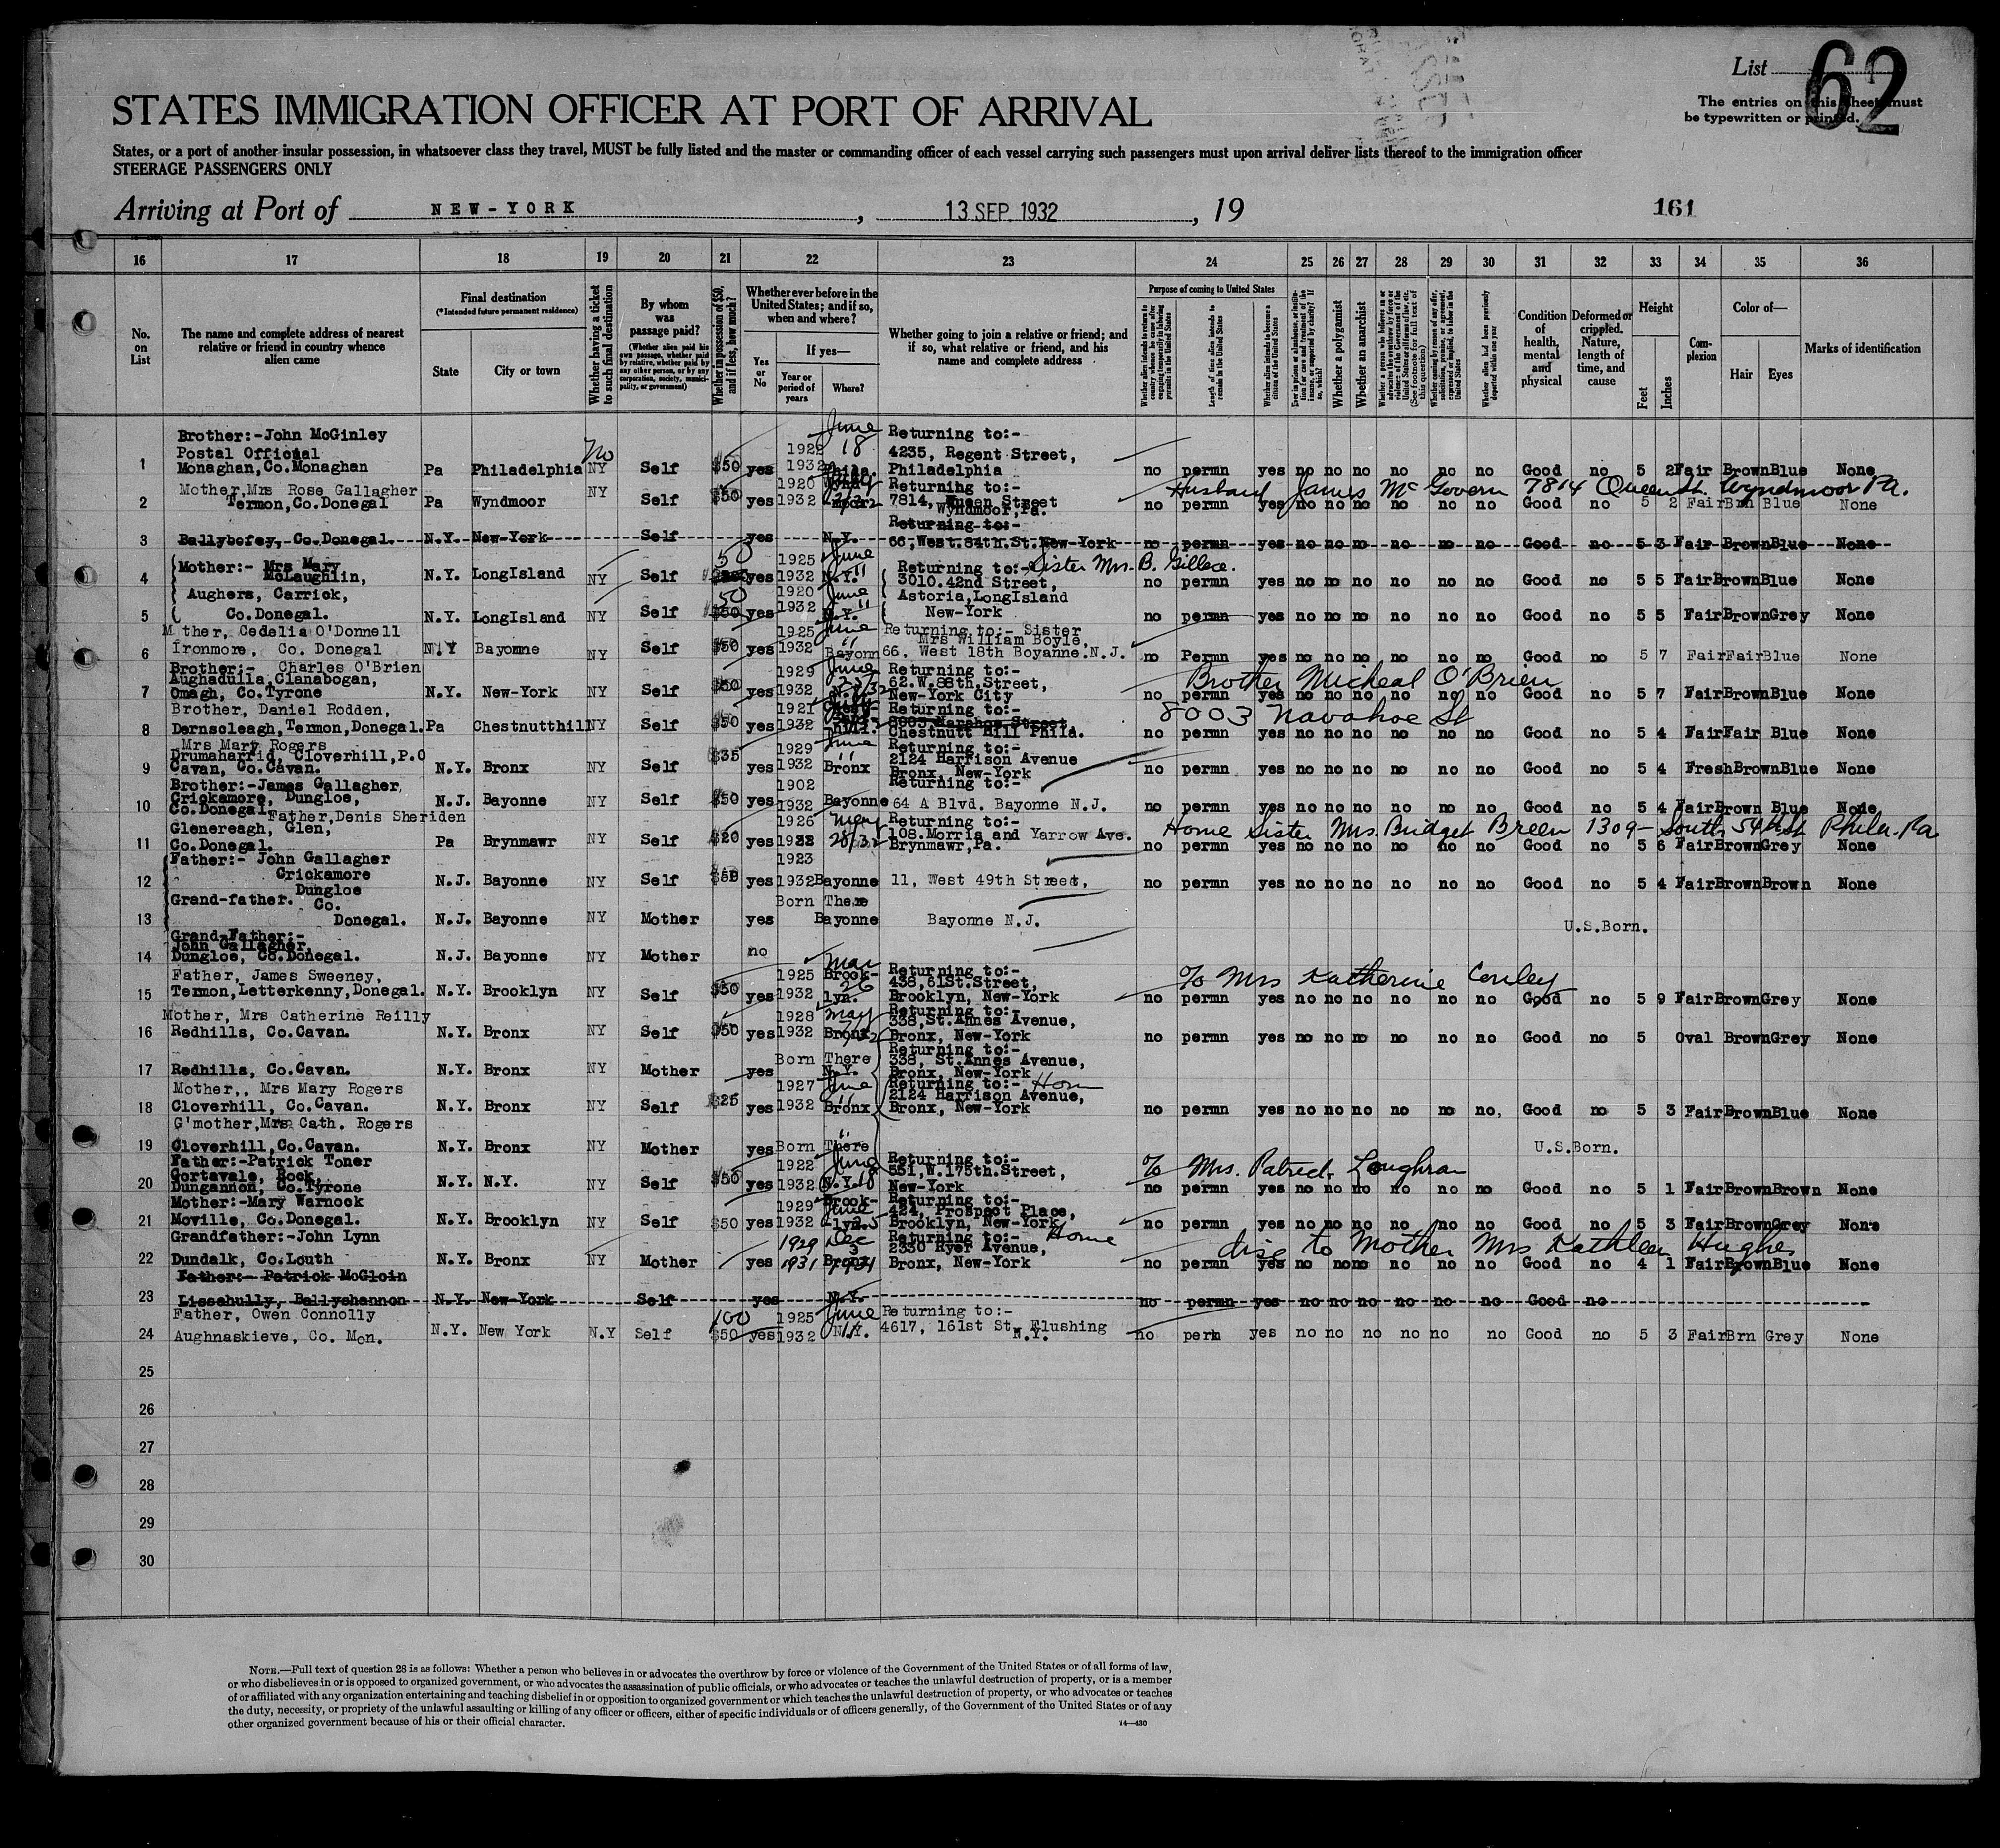 List 62
The entries on this sheet must
be typewritten or printed.
STATES IMMIGRATION OFFICER AT PORT OF ARRIVAL
States, or a port of another insular possession, in whatsoever class they travel, MUST be fully listed and the master or commanding officer of each vessel carrying such passengers must upon arrival deliver lists thereof to the immigration officer
STEERAGE PASSENGERS ONLY
Arriving at Port of NEW-YORK, 13 SEP. 1932, 19
161
16 17 18 19 20 21 22 23 24 25 26 27 28 29 30 31 32 33 34 35 36
No. on List
The name and complete address of nearest relative or friend in country whence alien came
Final destination
(*Intended future permanent residence)
State
City or town
Whether having a ticket to such final destination
By whom was passage paid?
(Whether alien paid his own passage, whether paid by relative, whether paid by any other person, or by any corporation, society, municipality, or government)
Whether in possession of $50, and if less, how much?
Whether ever before in the United States; and if so, when and where?
Yes or No
If yes—
Year or period of years
Where?
Whether going to join a relative or friend; and if so, what relative or friend, and his name and complete address
Purpose of coming to United States
Length of time alien intends to remain in the United States
Whether alien intends to become a citizen of the United States
Whether a polygamist
Whether an anarchist
Condition of health, mental and physical
Deformed or crippled. Nature, length of time, and cause
Height
Feet
Inches
Complexion
Color of—
Hair
Eyes
Marks of identification
Brother:-John McGinley
Postal Official
1 Monaghan,Co.Monaghan Pa Philadelphia No NY Self $50 yes 1922 1932 June 18 Phila. Returning to:- 4235, Regent Street, Philadelphia no permn yes no no no no no no Good no 5 2 Fair Brown Blue None
Mother,Mrs Rose Gallagher
2 Termon,Co.Donegal Pa Wyndmoor NY Self $50 yes 1920 1932 Returning to:- 7814, Queen Street Wyndmoor,Pa. no permn yes no no no no no no Good no 5 2 Fair Brn Blue None
Husband James McGovern 7814 Queen St. Wyndmoor Pa.
3 Ballybofey, Co.Donegal. N.Y. New-York Self yes N.Y. Returning to:- 66, West.84th.St.New-York no permn yes no no no no no no Good no 5 3 Fair Brown Blue None
Mother:- Mrs Mary McLaughlin,
4 N.Y. LongIsland NY Self 50 yes 1925 1932 June 11 N.Y. Returning to:- Sister Mrs. B. Gillece. 3010.42nd Street, no permn yes no no no no no no Good no 5 5 Fair Brown Blue None
Aughers, Carrick,
5 Co.Donegal. N.Y. LongIsland NY Self 50 $50 yes 1920 1932 June 11 N.Y. Astoria,LongIsland New-York no permn yes no no no no no no Good no 5 5 Fair Brown Grey None
M ther, Cedelia O'Donnell
6 Ironmore, Co. Donegal N.Y Bayonne NY Self $50 yes 1925 1932 June 11 Bayonn Returning to:- Sister Mrs William Boyle, 66. West 18th Boyanne.N.J. no Permn yes no no no no no no Good no 5 7 Fair Fair Blue None
Brother:- Charles O'Brien
Aughadulla,Clanabogan,
7 Omagh, Co.Tyrone N.Y. New-York NY Self $50 yes 1929 1932 June Returning to:- 62.W.88th.Street, New-York City no permn yes no no no no no no Good no 5 7 Fair Brown Blue None
Brother Micheal O'Brien
Brother, Daniel Rodden,
8 Dernscleagh,Termon,Donegal. Pa Chestnutthill NY Self $50 yes 1921 1932 Returning to:- Chestnutt Hill Phila. no permn yes no no no no no no Good no 5 4 Fair Fair Blue None
8003 Navahoe St
Mrs Mary Rogers
Drumaharrid, Cloverhill,P.O
9 Cavan, Co.Cavan. N.Y. Bronx NY Self $35 yes 1929 1932 June 11 Bronx Returning to:- 2124 Harrison Avenue Bronx, New-York no permn yes no no no no no no Good no 5 4 Fresh Brown Blue None
Brother:-James Gallagher,
Crickamore, Dungloe,
10 Co.Donegal N.J. Bayonne NY Self $50 yes 1902 1932 Bayonne Returning to:- 64 A Blvd. Bayonne N.J. no permn yes no no no no no no Good no 5 4 Fair Brown Blue None
Father,Denis Sheriden
Glenereagh, Glen,
11 Co.Donegal. Pa Brynmawr NY Self $20 yes 1926 1932 May 28/32 Returning to:- 108.Morris and Yarrow Ave. Brynmawr,Pa. no permn yes no no no no no no Good no 5 6 Fair Brown Grey None
Home Sister Mrs. Bridget Breen 1309- South 54th St Phila. Pa
Father:- John Gallagher
12 Crickamore Dungloe N.J. Bayonne NY Self $50 yes 1923 1932 Bayonne 11, West 49th Street, no permn yes no no no no no no Good no 5 4 Fair Brown Brown None
Grand-father.
13 Co. Donegal. N.J. Bayonne NY Mother yes Born There Bayonne Bayonne N.J. U.S.Born.
Grand-Father:-
John Gallagher,
14 Dungloe, Co.Donegal. N.J. Bayonne NY Mother no
Father, James Sweeney,
15 Termon,Letterkenny,Donegal. N.Y. Brooklyn NY Self $50 yes 1925 1932 May 26 Brook-lyn. Returning to:- 438,61St.Street, Brooklyn, New-York no permn yes no no no no no no Good no 5 9 Fair Brown Grey None
To Mrs Katherine Conley
Mother, Mrs Catherine Reilly
16 Redhills, Co.Cavan. N.Y. Bronx NY Self $50 yes 1928 1932 May Bronx Returning to:- 338,St.Annes Avenue, Bronx, New-York no permn yes no no no no no no Good no 5 Oval Brown Grey None
17 Redhills, Co.Cavan. N.Y. Bronx NY Mother yes Born There N.Y. Returning to:- 338, St.Annes Avenue, Bronx, New-York
Mother,, Mrs Mary Rogers
18 Cloverhill, Co.Cavan. N.Y. Bronx NY Self $25 yes 1927 1932 June 11 Bronx Returning to:- Home 2124 Harrison Avenue, Bronx, New-York no permn yes no no no no no no, Good no 5 3 Fair Brown Blue None
G'mother,Mrs Cath. Rogers
19 Cloverhill,Co.Cavan. N.Y. Bronx NY Mother yes Born There U.S.Born.
Father:-Patrick Toner
Gortavale, Rock,
20 Dungannon, Co.Tyrone N.Y. N.Y. NY Self $50 yes 1922 1932 June 18 N.Y. Returning to:- 551,W.175th.Street, New-York no permn yes no no no no no no Good no 5 1 Fair Brown Brown None
To Mrs. Patrick Loughran
Mother:-Mary Warnock
21 Moville, Co.Donegal. N.Y. Brooklyn NY Self $50 yes 1929 1932 June 25 Brook-lyn Returning to:- 424, Prospect Place, Brooklyn, New-York no permn yes no no no no no no Good no 5 3 Fair Brown Grey None
Grandfather:-John Lynn
22 Dundalk, Co.Louth N.Y. Bronx NY Mother yes 1929 1931 Dec 3 Bronx Returning to:- Home 2330 Ryer Avenue, Bronx, New-York no permn yes no no no no no no Good no 4 1 Fair Brown Blue None
disc to Mother Mrs Kathleen Hughes
Father:- Patrick McGloin
23 Lissahully, Ballyshannon N.Y. New-York Self yes N.Y. no permn yes no no no no no no Good no
Father, Owen Connolly
24 Aughnaskieve, Co. Mon. N.Y. New York N.Y Self 100 $50 yes 1925 1932 June 11 N.Y. Returning to:- 4617, 161st St. Flushing N.Y. no perm yes no no no no no no Good no 5 3 Fair Brn Grey None
25
26
27
28
29
30
NOTE.—Full text of question 28 is as follows: Whether a person who believes in or advocates the overthrow by force or violence of the Government of the United States or of all forms of law,
or who disbelieves in or is opposed to organized government, or who advocates the assassination of public officials, or who advocates or teaches the unlawful destruction of property, or is a member
of or affiliated with any organization entertaining and teaching disbelief in or opposition to organized government or which teaches the unlawful destruction of property, or who advocates or teaches
the duty, necessity, or propriety of the unlawful assaulting or killing of any officer or officers, either of specific individuals or of officers generally, of the Government of the United States or of any
other organized government because of his or their official character.
14—430